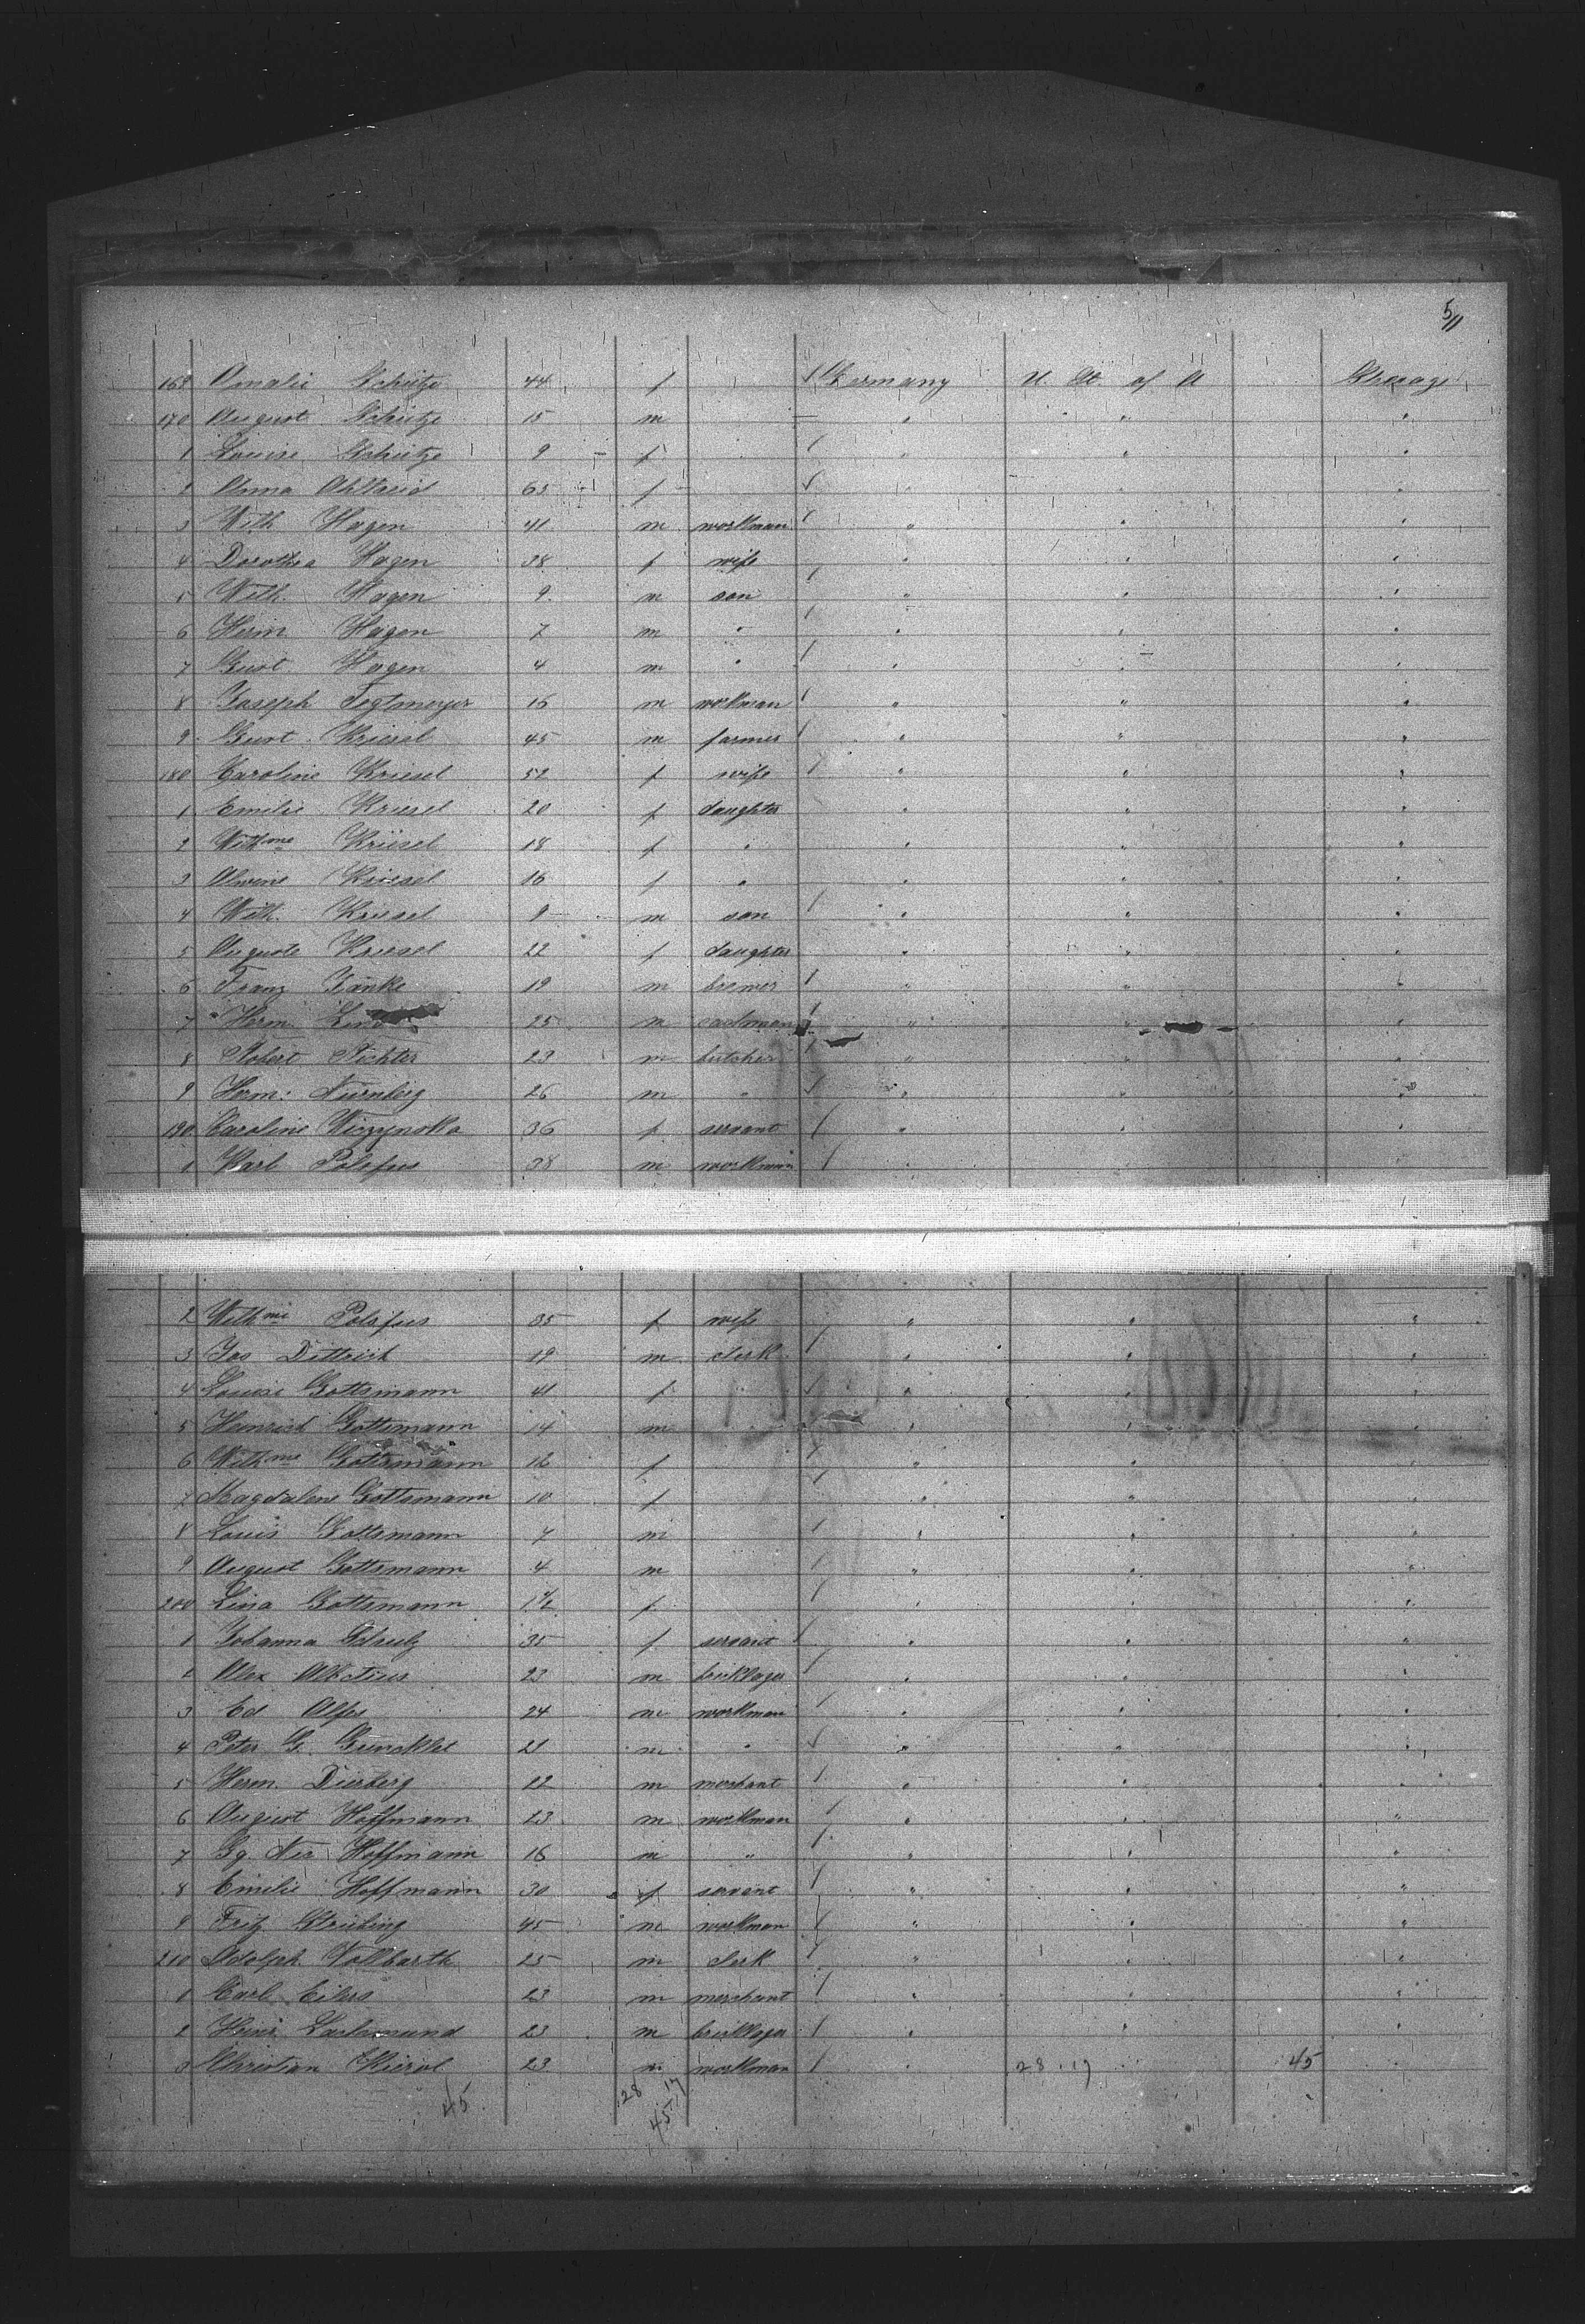 5/11
169 Amalie Schütze 44 f Germany U. St. of A Steerage
170 August Schütze 15 m " " "
1 Louise Schütze 9 f " " "
2 Anna 65 f " " "
3 Wilh Hagen 41 m workman " " "
4 Dorothea Hagen 38 f wife " " "
5 Wilh. Hagen 9 m son " " "
6 Herm Hagen 7 m " " " "
7 Gust Hagen 4 m " " " "
8 Joseph Tegtmeyer 16 m workman " " "
9 Gust Kriesel 45 m farmer " " "
180 Caroline Kriesel 52 f wife " " "
1 Emilie Kriesel 20 f daughter " " "
2 Wilhme Kriesel 18 f " " " "
3 Alwine Kriesel 16 f " " " "
4 Wilh. Kriesel 9 m son " " "
5 Auguste Kriesel 22 f daughter " " "
6 Franz Jänke 19 m bremer " " "
7 Herm 25 m " " "
8 Robert Richter 23 m butcher " " "
9 Herm: Nürnberg 26 m " " " "
190 Caroline Wiczynska 36 f servant " " "
1 Karl 38 m workman " " "
2 Wilhme 35 f wife " " "
3 Jos Dittrich 19 m clerk " " "
4 Louise Gottsmann 41 f " " "
5 Heinrich Gottsmann 14 m " " "
6 Wilhme Gottsmann 12 f " " "
7 Magdalene Gottsmann 10 f " " "
8 Louis Gottsmann 7 m " " "
9 August Gottsmann 4 m " " "
200 Lina Gottsmann 1 1/2 f " " "
1 Johanna Schulz 35 f servant " " "
2 Alex 23 m bricklayer " " "
3 Ed Alfes 24 m workman " " "
4 Peter G. Gunckler 21 m " " " "
5 Herm. Dierberg 22 m merchant " " "
6 August Hoffmann 23 m workman " " "
7 Gg. Hoffmann 16 m " " " "
8 Emilie Hoffmann 30 f servant " " "
9 Fritz Strübing 45 m workman " " "
210 Adolph Vollbarth 25 m clerk " " "
1 Carl Eilers 23 m merchant " " "
2 Heinr Lachmund 23 m bricklayer " " "
3 Christian 23 m workman " 28.17 45 "
45 28 17
45